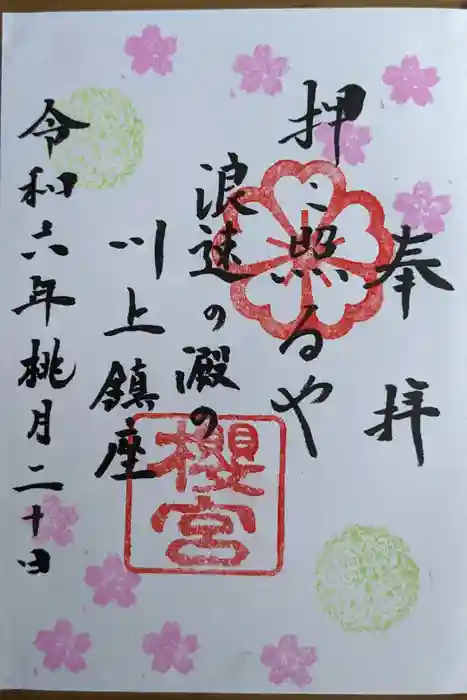 奉拝
押〻照るや
浪速の澱の
川上鎮座
令和六年桃月二十日
櫻宮